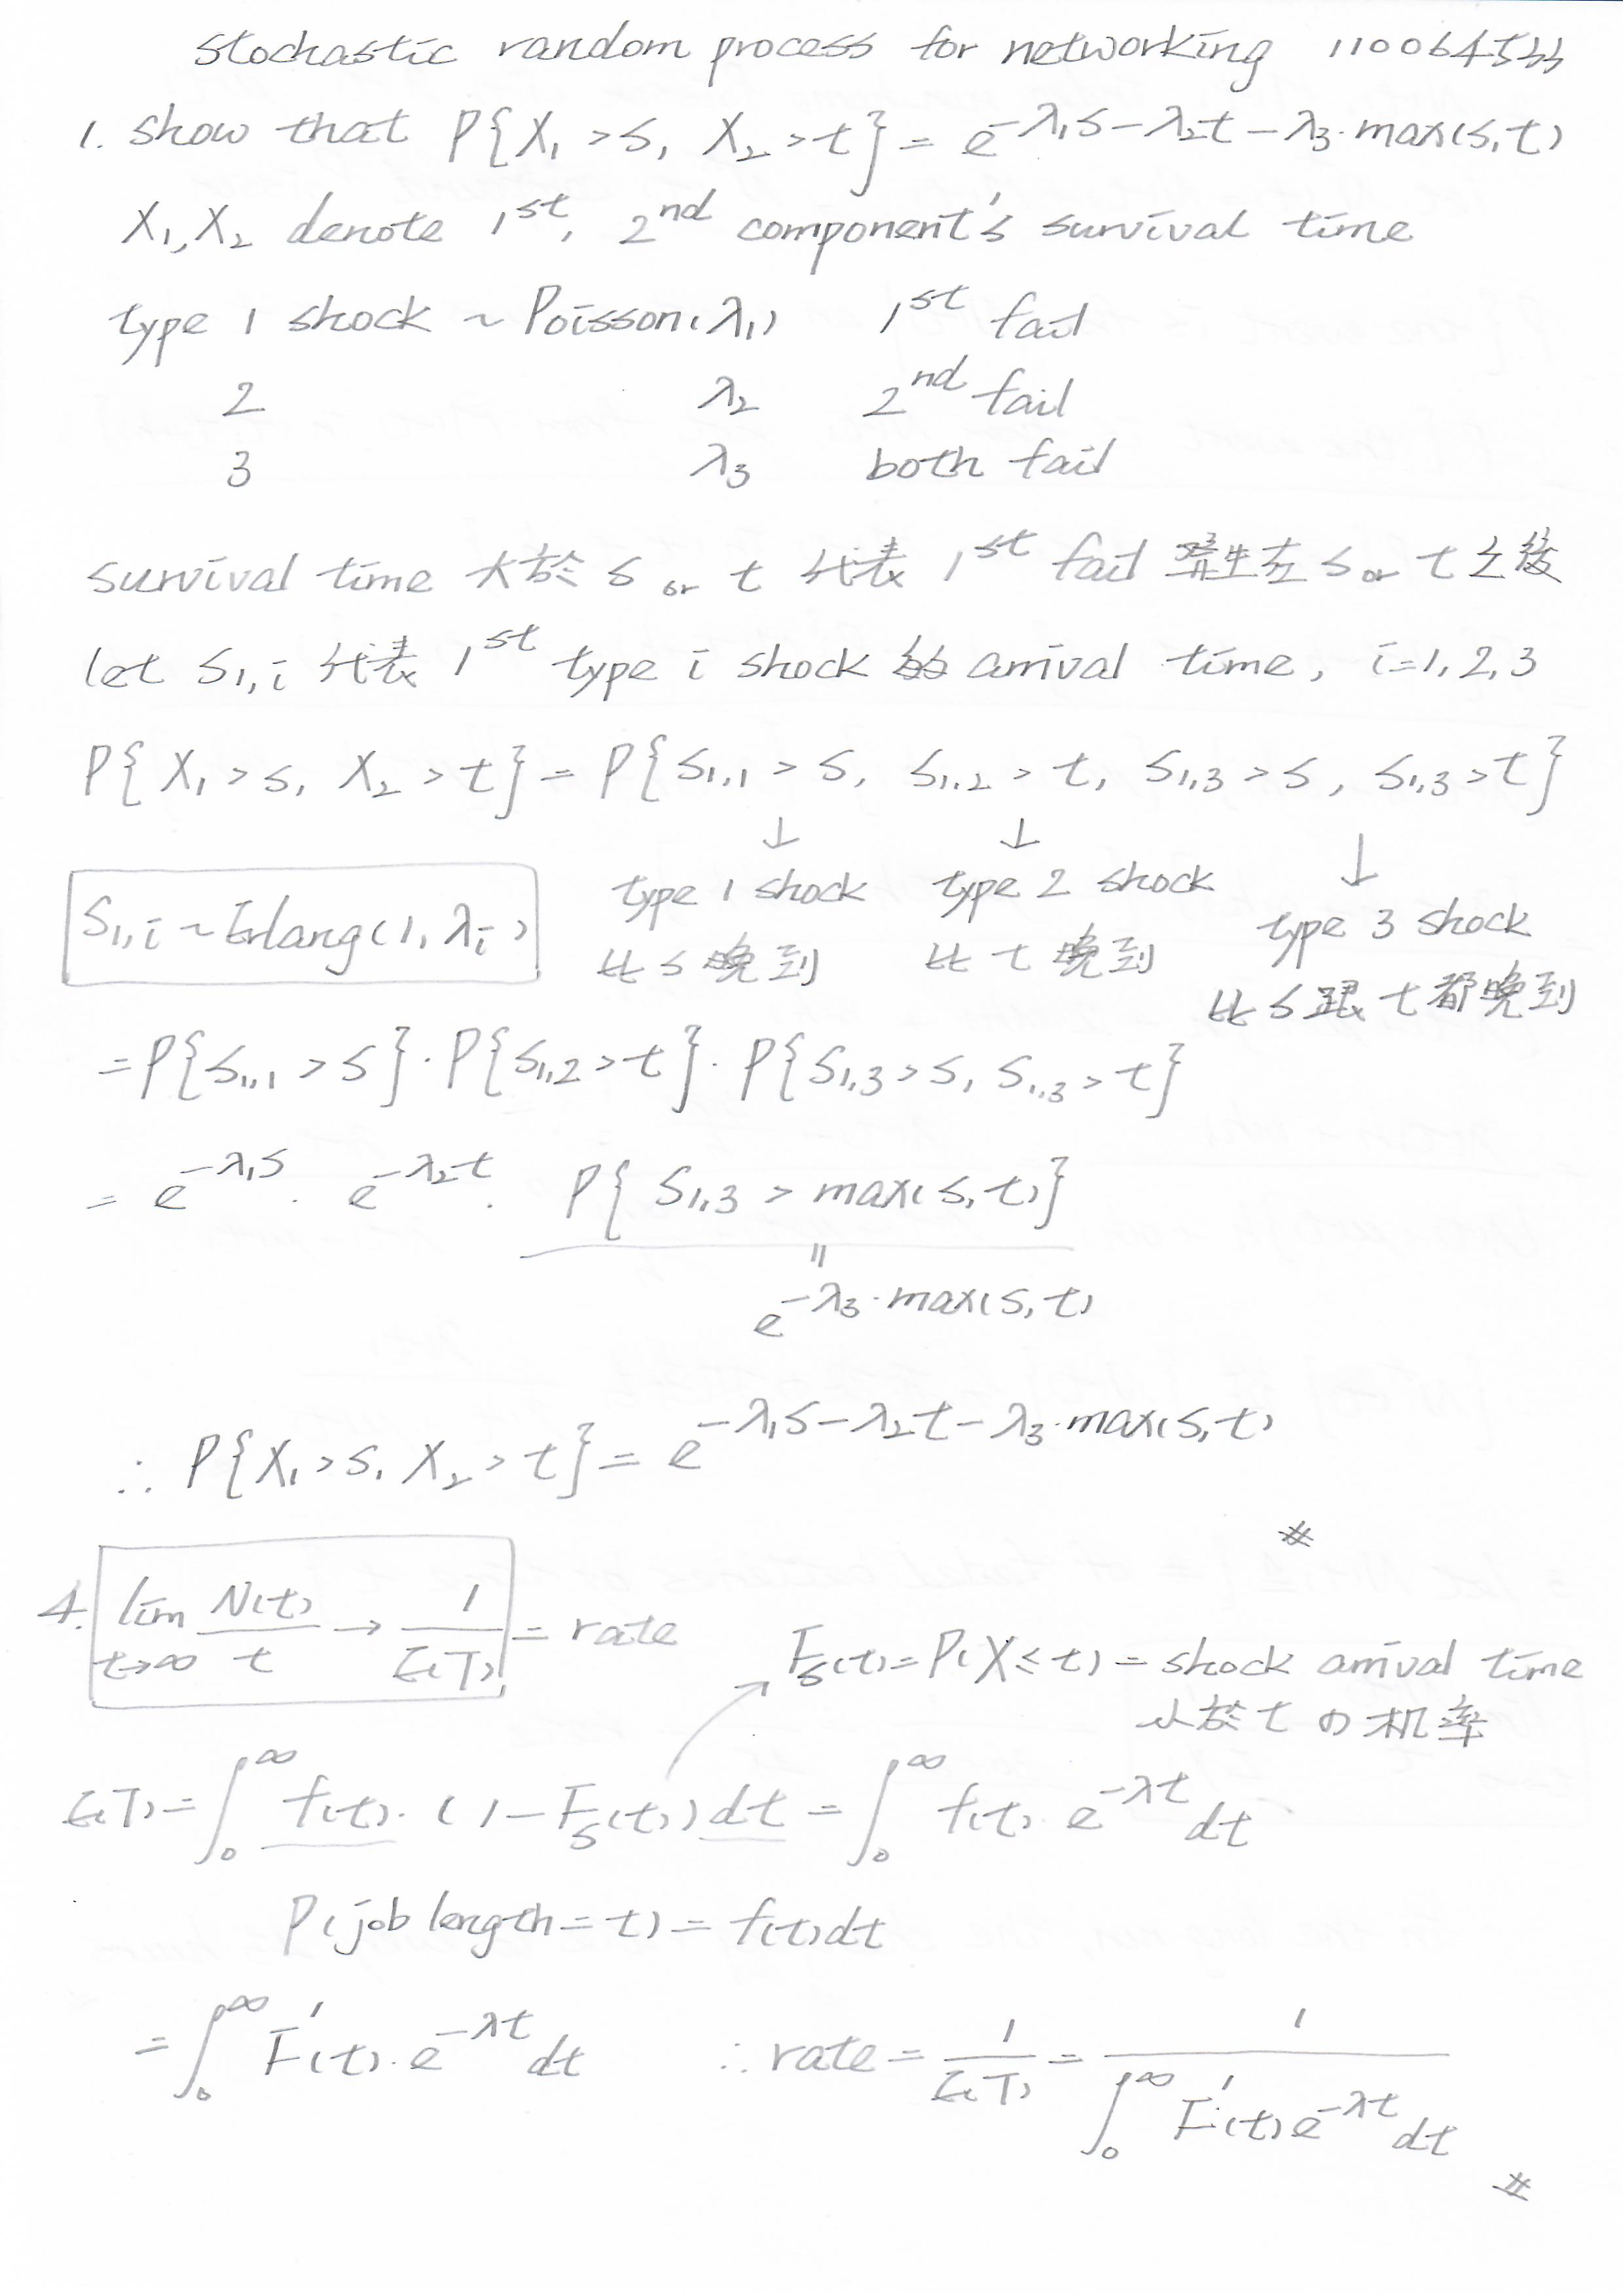 stochastic random process for networking 110064533
1. show that P{X₁ > s, X₂ > t} = e^{-λ₁s-λ₂t-λ₃·max(s,t)}
X₁, X₂ denote 1st, 2nd component's survival time
type 1 shock ~ Poisson(λ₁) 1st fail
2 λ₂ 2nd fail
3 λ₃ both fail
survival time 大於 s or t 代表 1st fail 發生在 s or t 之後
let S₁,ᵢ 代表 1st type i shock 的 arrival time, i=1,2,3
P{X₁ > s, X₂ > t} = P{S₁,₁ > s, S₁,₂ > t, S₁,₃ > s, S₁,₃ > t}
↓ ↓ ↓
S₁,ᵢ ~ Erlang(1, λᵢ)
type 1 shock
比 s 晚到
type 2 shock
比 t 晚到
type 3 shock
比 s 跟 t 都晚到
= P{S₁,₁ > s} · P{S₁,₂ > t} · P{S₁,₃ > s, S₁,₃ > t}
= e^{-λ₁s} · e^{-λ₂t} · P{S₁,₃ > max(s,t)}
=
e^{-λ₃·max(s,t)}
∴ P{X₁ > s, X₂ > t} = e^{-λ₁s-λ₂t-λ₃·max(s,t)}
#
4. lim_{t→∞} N(t)/t → 1/E(T) = rate
F_S(t) = P(X ≤ t) = shock arrival time
小於 t の机率
E(T) = ∫₀^∞ f(t) · (1 - F_S(t)) dt = ∫₀^∞ f(t) · e^{-λt} dt
P(job length = t) = f(t)dt
= ∫₀^∞ F'(t) · e^{-λt} dt ∴ rate = 1/E(T) = 1/∫₀^∞ F'(t) e^{-λt} dt
#